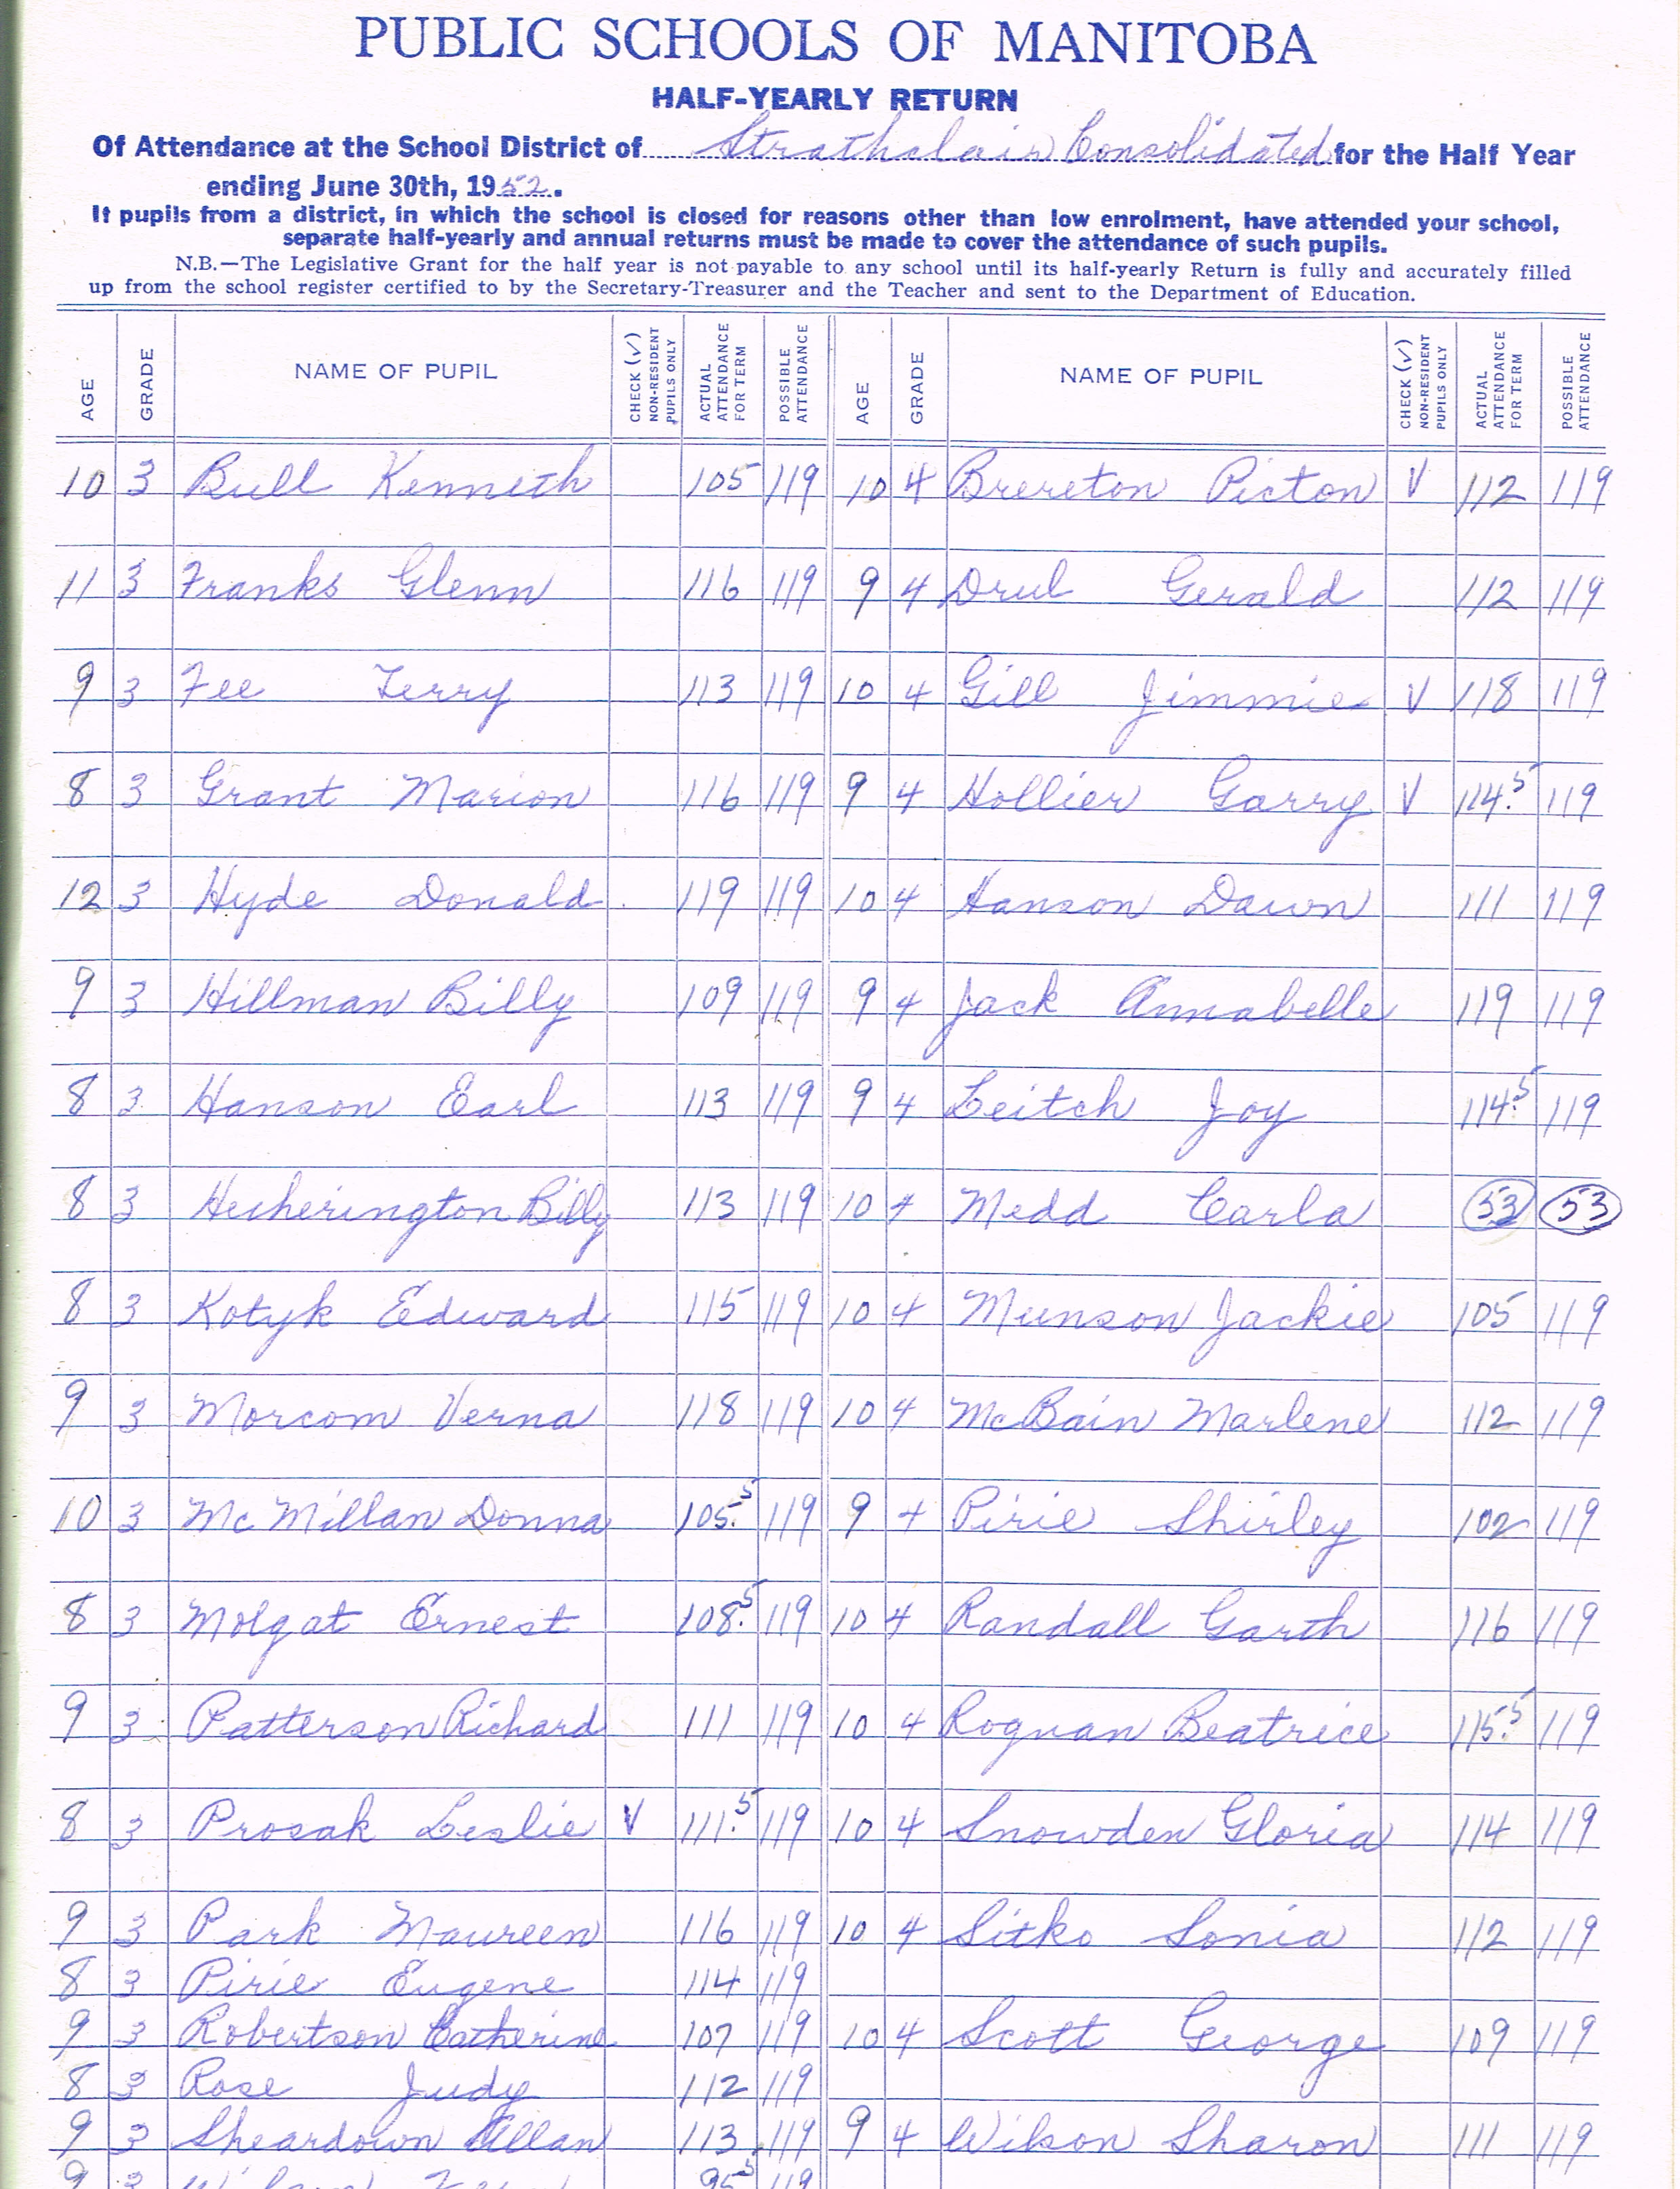 PUBLIC SCHOOLS OF MANITOBA
HALF-YEARLY RETURN
Of Attendance at the School District of Strathclair Consolidated for the Half Year
ending June 30th, 1952.
If pupils from a district, in which the school is closed for reasons other than low enrolment, have attended your school,
separate half-yearly and annual returns must be made to cover the attendance of such pupils.
N.B.—The Legislative Grant for the half year is not payable to any school until its half-yearly Return is fully and accurately filled
up from the school register certified to by the Secretary-Treasurer and the Teacher and sent to the Department of Education.
AGE GRADE NAME OF PUPIL CHECK (✓) NON-RESIDENT PUPILS ONLY ACTUAL ATTENDANCE FOR TERM POSSIBLE ATTENDANCE AGE GRADE NAME OF PUPIL CHECK (✓) NON-RESIDENT PUPILS ONLY ACTUAL ATTENDANCE FOR TERM POSSIBLE ATTENDANCE
10 3 Bull Kenneth 105 119 10 4 Brereton Picton V 112 119
11 3 Franks Glenn 116 119 9 4 Drul Gerald 112 119
9 3 Fee Terry 113 119 10 4 Gill Jimmie V 118 119
8 3 Grant Marion 116 119 9 4 Hollier Garry V 114.5 119
12 3 Hyde Donald 119 119 10 4 Hanson Dawn 111 119
9 3 Hillman Billy 109 119 9 4 Jack Annabelle 119 119
8 3 Hanson Earl 113 119 9 4 Leitch Joy 114.5 119
8 3 Hetherington Billy 113 119 10 4 Medd Carla 53 53
8 3 Kotyk Edward 115 119 10 4 Munson Jackie 105 119
9 3 Morcom Verna 118 119 10 4 McBain Marlene 112 119
10 3 McMillan Donna 105.5 119 9 4 Pirie Shirley 102 119
8 3 Molgat Ernest 108.5 119 10 4 Randall Garth 116 119
9 3 Patterson Richard 111 119 10 4 Roguan Beatrice 115.5 119
8 3 Prosak Leslie V 111.5 119 10 4 Snowden Gloria 114 119
9 3 Park Maureen 116 119 10 4 Sitko Sonia 112 119
8 3 Pirie Eugene 114 119
9 3 Robertson Catherine 107 119 10 4 Scott George 109 119
8 3 Rose Judy 112 119
9 3 Sheardown Allan 113 119 9 4 Wilson Sharon 111 119
9 3 95.5 119